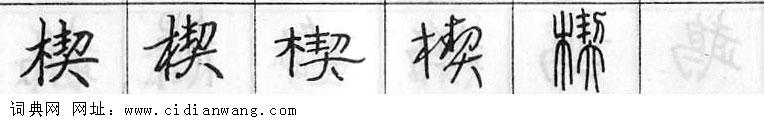 楔 楔 楔 楔 楔
词典网 网址：www.cidianwang.com